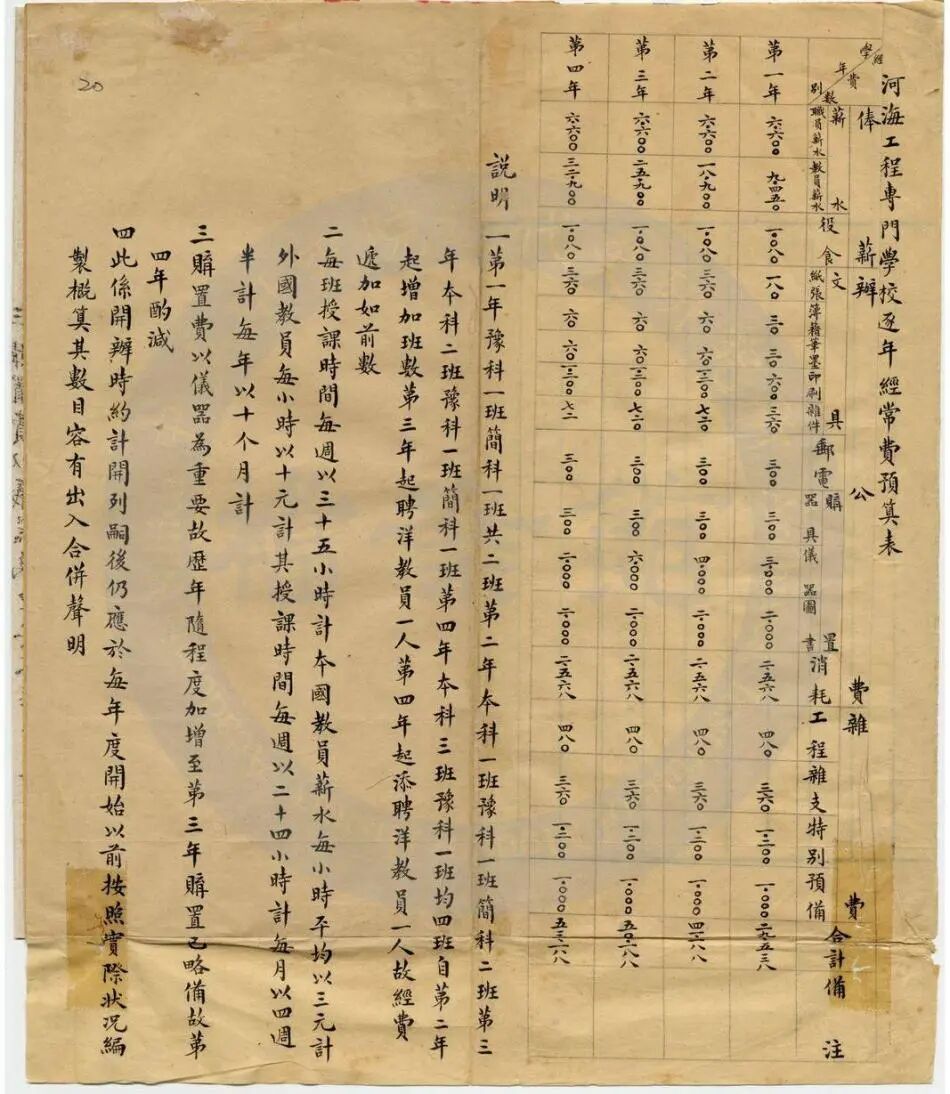 河海工程專門學校逐年經常費預算表
經費數
學年別
俸薪
辦公費
雜費
薪水
役食
文具
郵電
購置
消耗
工程
雜支
特別預備
合計
備注
職員薪水
教員薪水
紙張
簿籍
筆墨
印刷
雜件
器具
儀器
圖書
第一年 六·六〇〇 九·四五〇 一·〇八〇 一八〇 三〇 三〇 六〇〇 三六〇 三〇〇 三〇〇 三·〇〇〇 二·〇〇〇 二·五六八 四八〇 三六〇 一·二〇〇 一·〇〇〇 二九·五三八
第二年 六·六〇〇 一八·九〇〇 一·〇八〇 三六〇 六〇 六〇 一·二〇〇 七二〇 三〇〇 三〇〇 四·〇〇〇 二·〇〇〇 二·五六八 四八〇 三六〇 一·二〇〇 一·〇〇〇 四一·一八八
第三年 六·六〇〇 二五·九〇〇 一·〇八〇 三六〇 六〇 六〇 一·二〇〇 七二〇 三〇〇 三〇〇 六·〇〇〇 二·〇〇〇 二·五六八 四八〇 三六〇 一·二〇〇 一·〇〇〇 五〇·一八八
第四年 六·六〇〇 三二·九〇〇 一·〇八〇 三六〇 六〇 六〇 一·二〇〇 七二〇 三〇〇 三〇〇 二·〇〇〇 二·〇〇〇 二·五六八 四八〇 三六〇 一·二〇〇 一·〇〇〇 五三·一八八
說明 一第一年豫科一班簡科一班共二班第二年本科一班豫科一班簡科二班第三
年本科二班豫科一班簡科一班第四年本科三班豫科一班均四班自第二年
起增加班數第三年起聘洋教員一人第四年起添聘洋教員一人故經費
遞加如前數
二每班授課時間每週以三十五小時計本國教員薪水每小時平均以三元計
外國教員每小時以十元計其授課時間每週以二十四小時計每月以四週
半計每年以十个月計
三購置費以儀器為重要故歷年隨程度加增至第三年購置已略備故第
四年酌減
四此係開辦時約計開列嗣後仍應於每年度開始以前按照實際狀况編
製概算其數目容有出入合併聲明
20